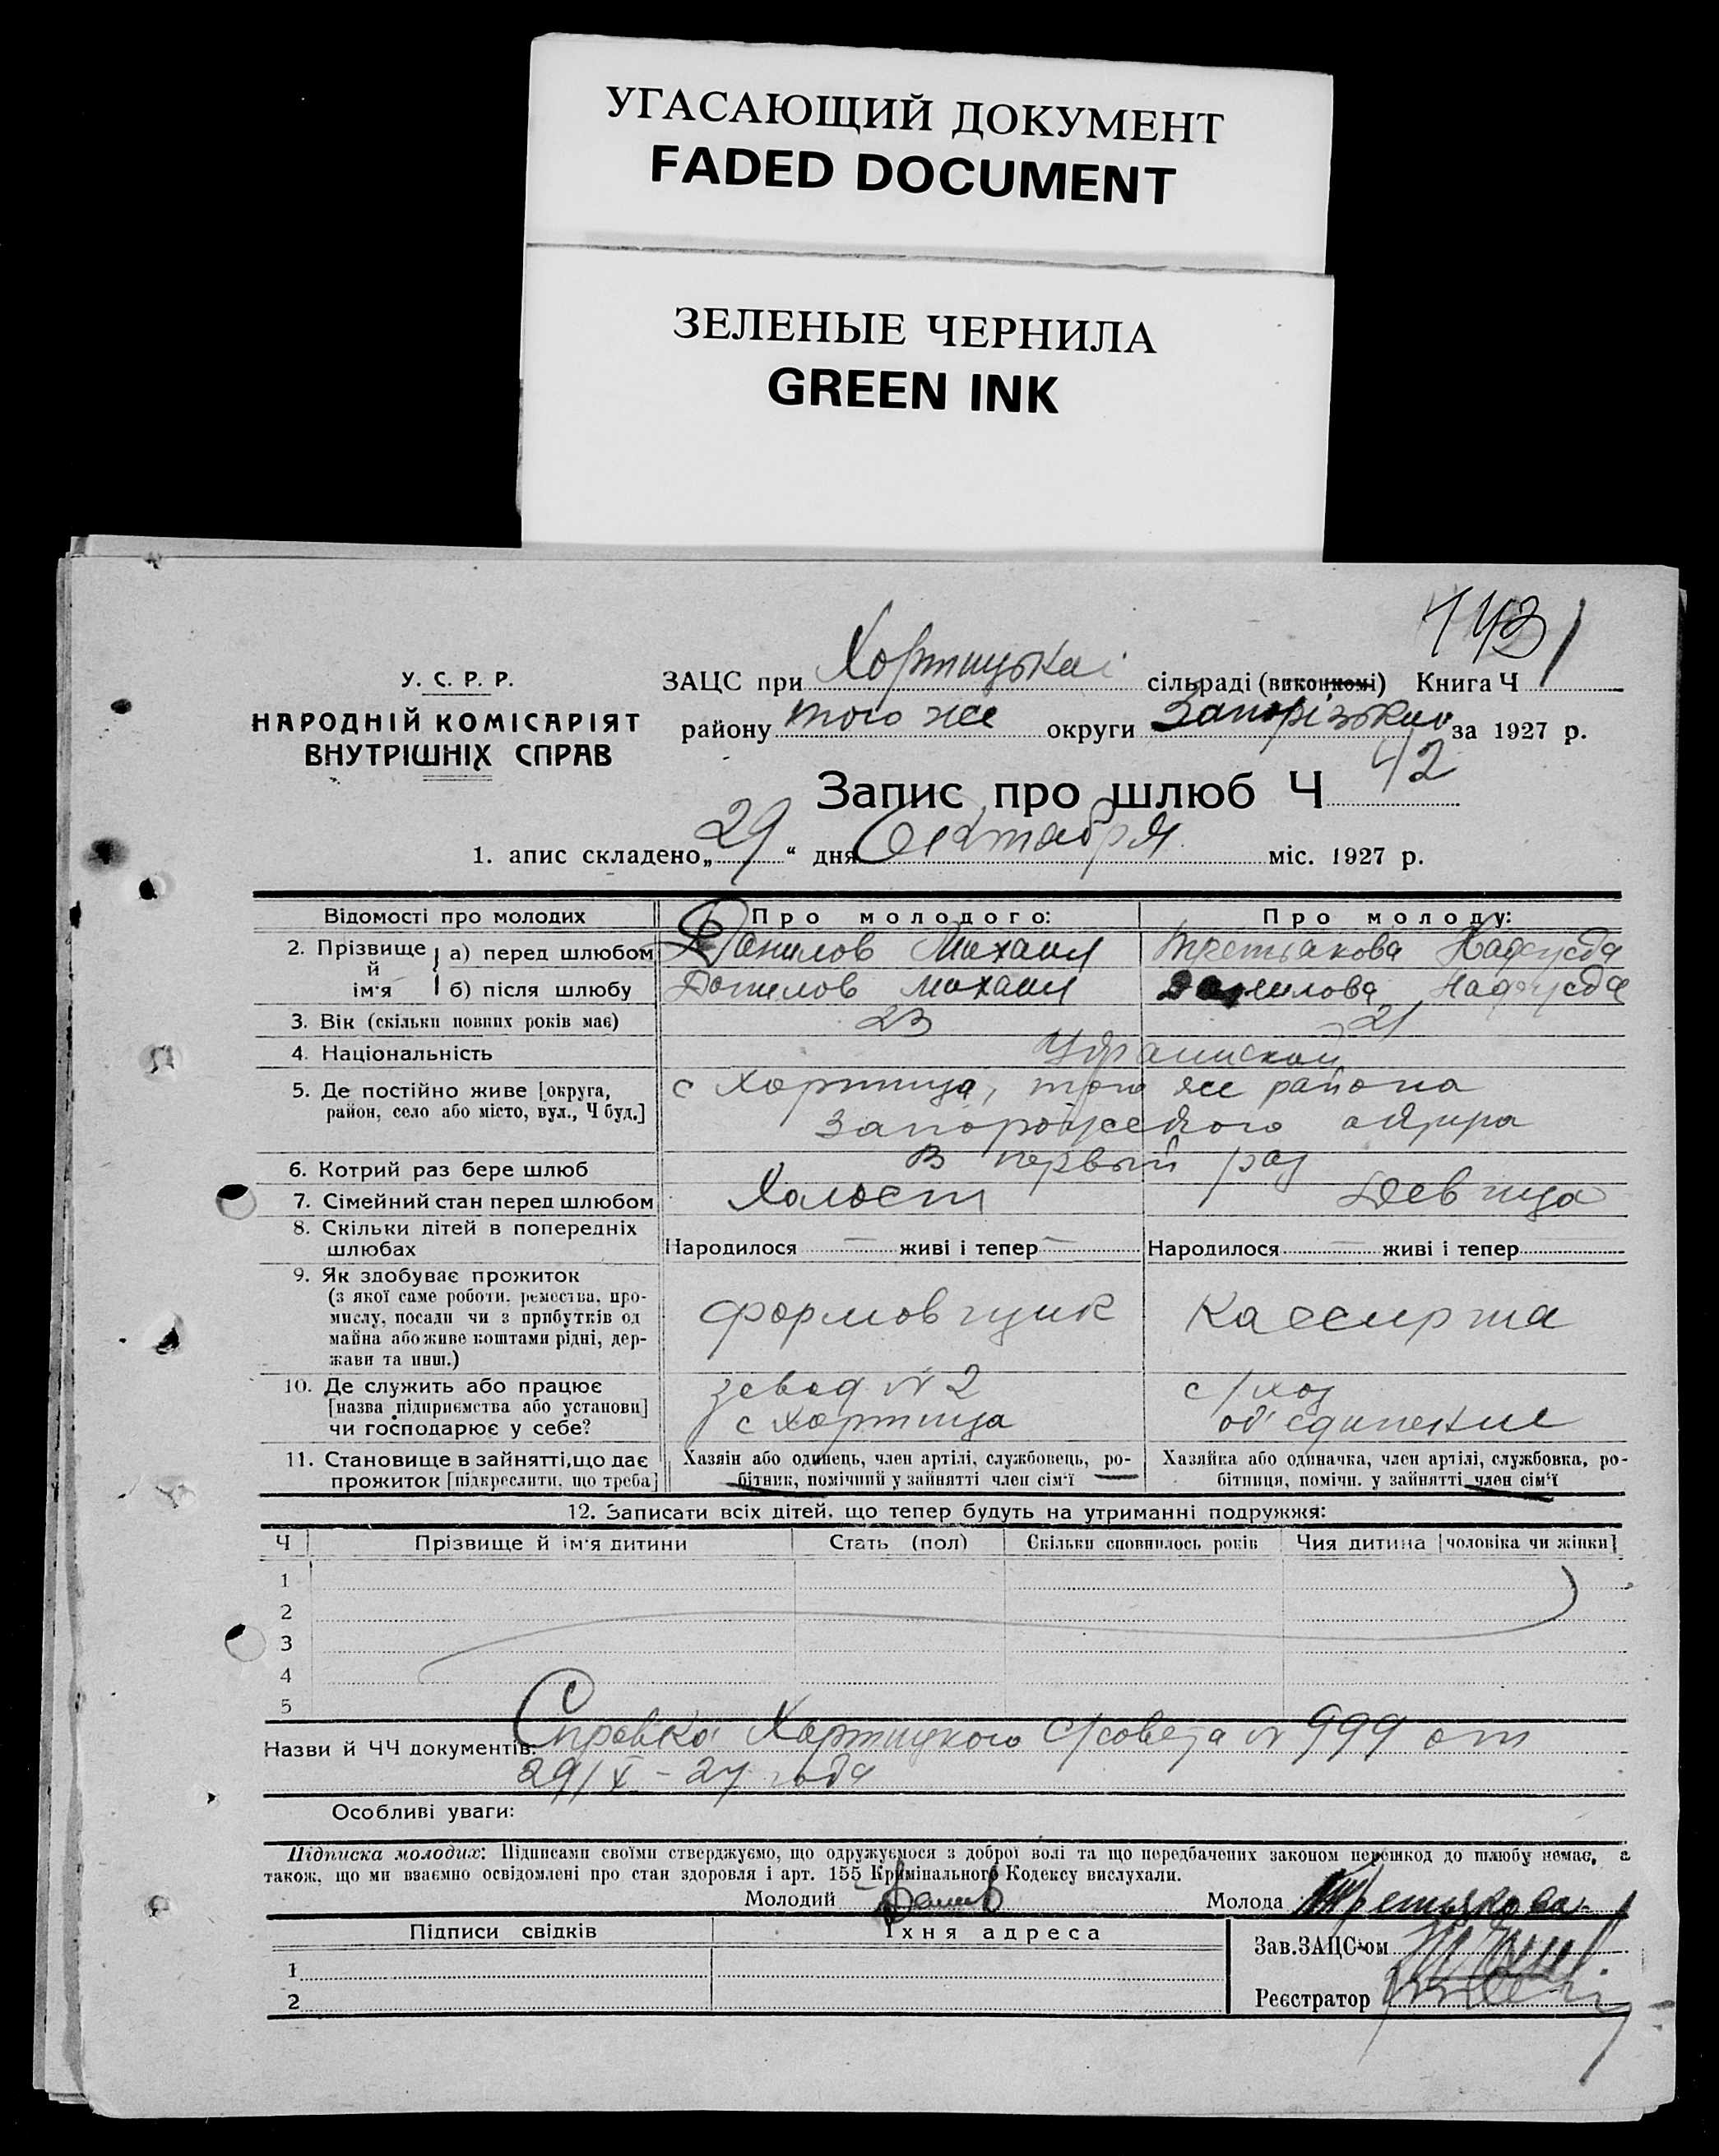 УГАСАЮЩИЙ ДОКУМЕНТ
FADED DOCUMENT
ЗЕЛЕНЫЕ ЧЕРНИЛА
GREEN INK
У. С. Р. Р.
НАРОДНІЙ КОМІСАРІЯТ
ВНУТРІШНІХ СПРАВ
143
ЗАЦС при Хортицькій сільраді (виконкомі) Книга Ч 1
району того же округи Запорізькою за 1927 р.
Запис про шлюб Ч 42
1. апис складено „29“ дня Октября міс. 1927 р.
Відомості про молодих Про молодого: Про молоду:
2. Прізвище й ім'я а) перед шлюбом Данилов Михаил Третьякова Надежда
б) після шлюбу Данилов Михаил Данилова Надежда
3. Вік (скільки повних років має) 23 21
4. Національність
5. Де постійно живе [округа, район, село або місто, вул., Ч буд.] с Хортица, того же района
Запорожского округа
6. Котрий раз бере шлюб В первый раз
7. Сімейний стан перед шлюбом Холост Девица
8. Скільки дітей в попередніх шлюбах Народилося — живі і тепер — Народилося — живі і тепер
9. Як здобуває прожиток
(з якої саме роботи, ремества, про-
мислу, посади чи з прибутків од
майна або живе коштами рідні, дер-
жави та инш.) формовщик Кассирша
10. Де служить або працює
[назва підприємства або установи]
чи господарює у себе? завод N 2
с Хортица с/хоз
об'единение
11. Становище в зайнятті, що дає
прожиток [підкреслити, що треба] Хазяін або одинець, член артілі, службовець, ро-
бітник, помічний у зайнятті член сім'ї Хазяйка або одиначка, член артілі, службовка, ро-
бітниця, помічн. у зайнятті член сім'ї
12. Записати всіх дітей, що тепер будуть на утриманні подружжя:
Ч Прізвище й ім'я дитини Стать (пол) Скільки сповнилось років Чия дитина [чоловіка чи жінки]
1
2
3
4
5
Назви й ЧЧ документів: Справка Хортицкого с/совета N 999 от
29/X - 27 года
Особливі уваги:
Підписка молодих: Підписами своїми стверджуємо, що одружуємося з доброї волі та що передбачених законом перешкод до шлюбу немає, а
також, що ми взаємно освідомлені про стан здоровля і арт. 155 Кримінального Кодексу вислухали.
Молодий Молода Третьякова
Підписи свідків Їхня адреса
Зав. ЗАЦС-ом
1
2
Реєстратор